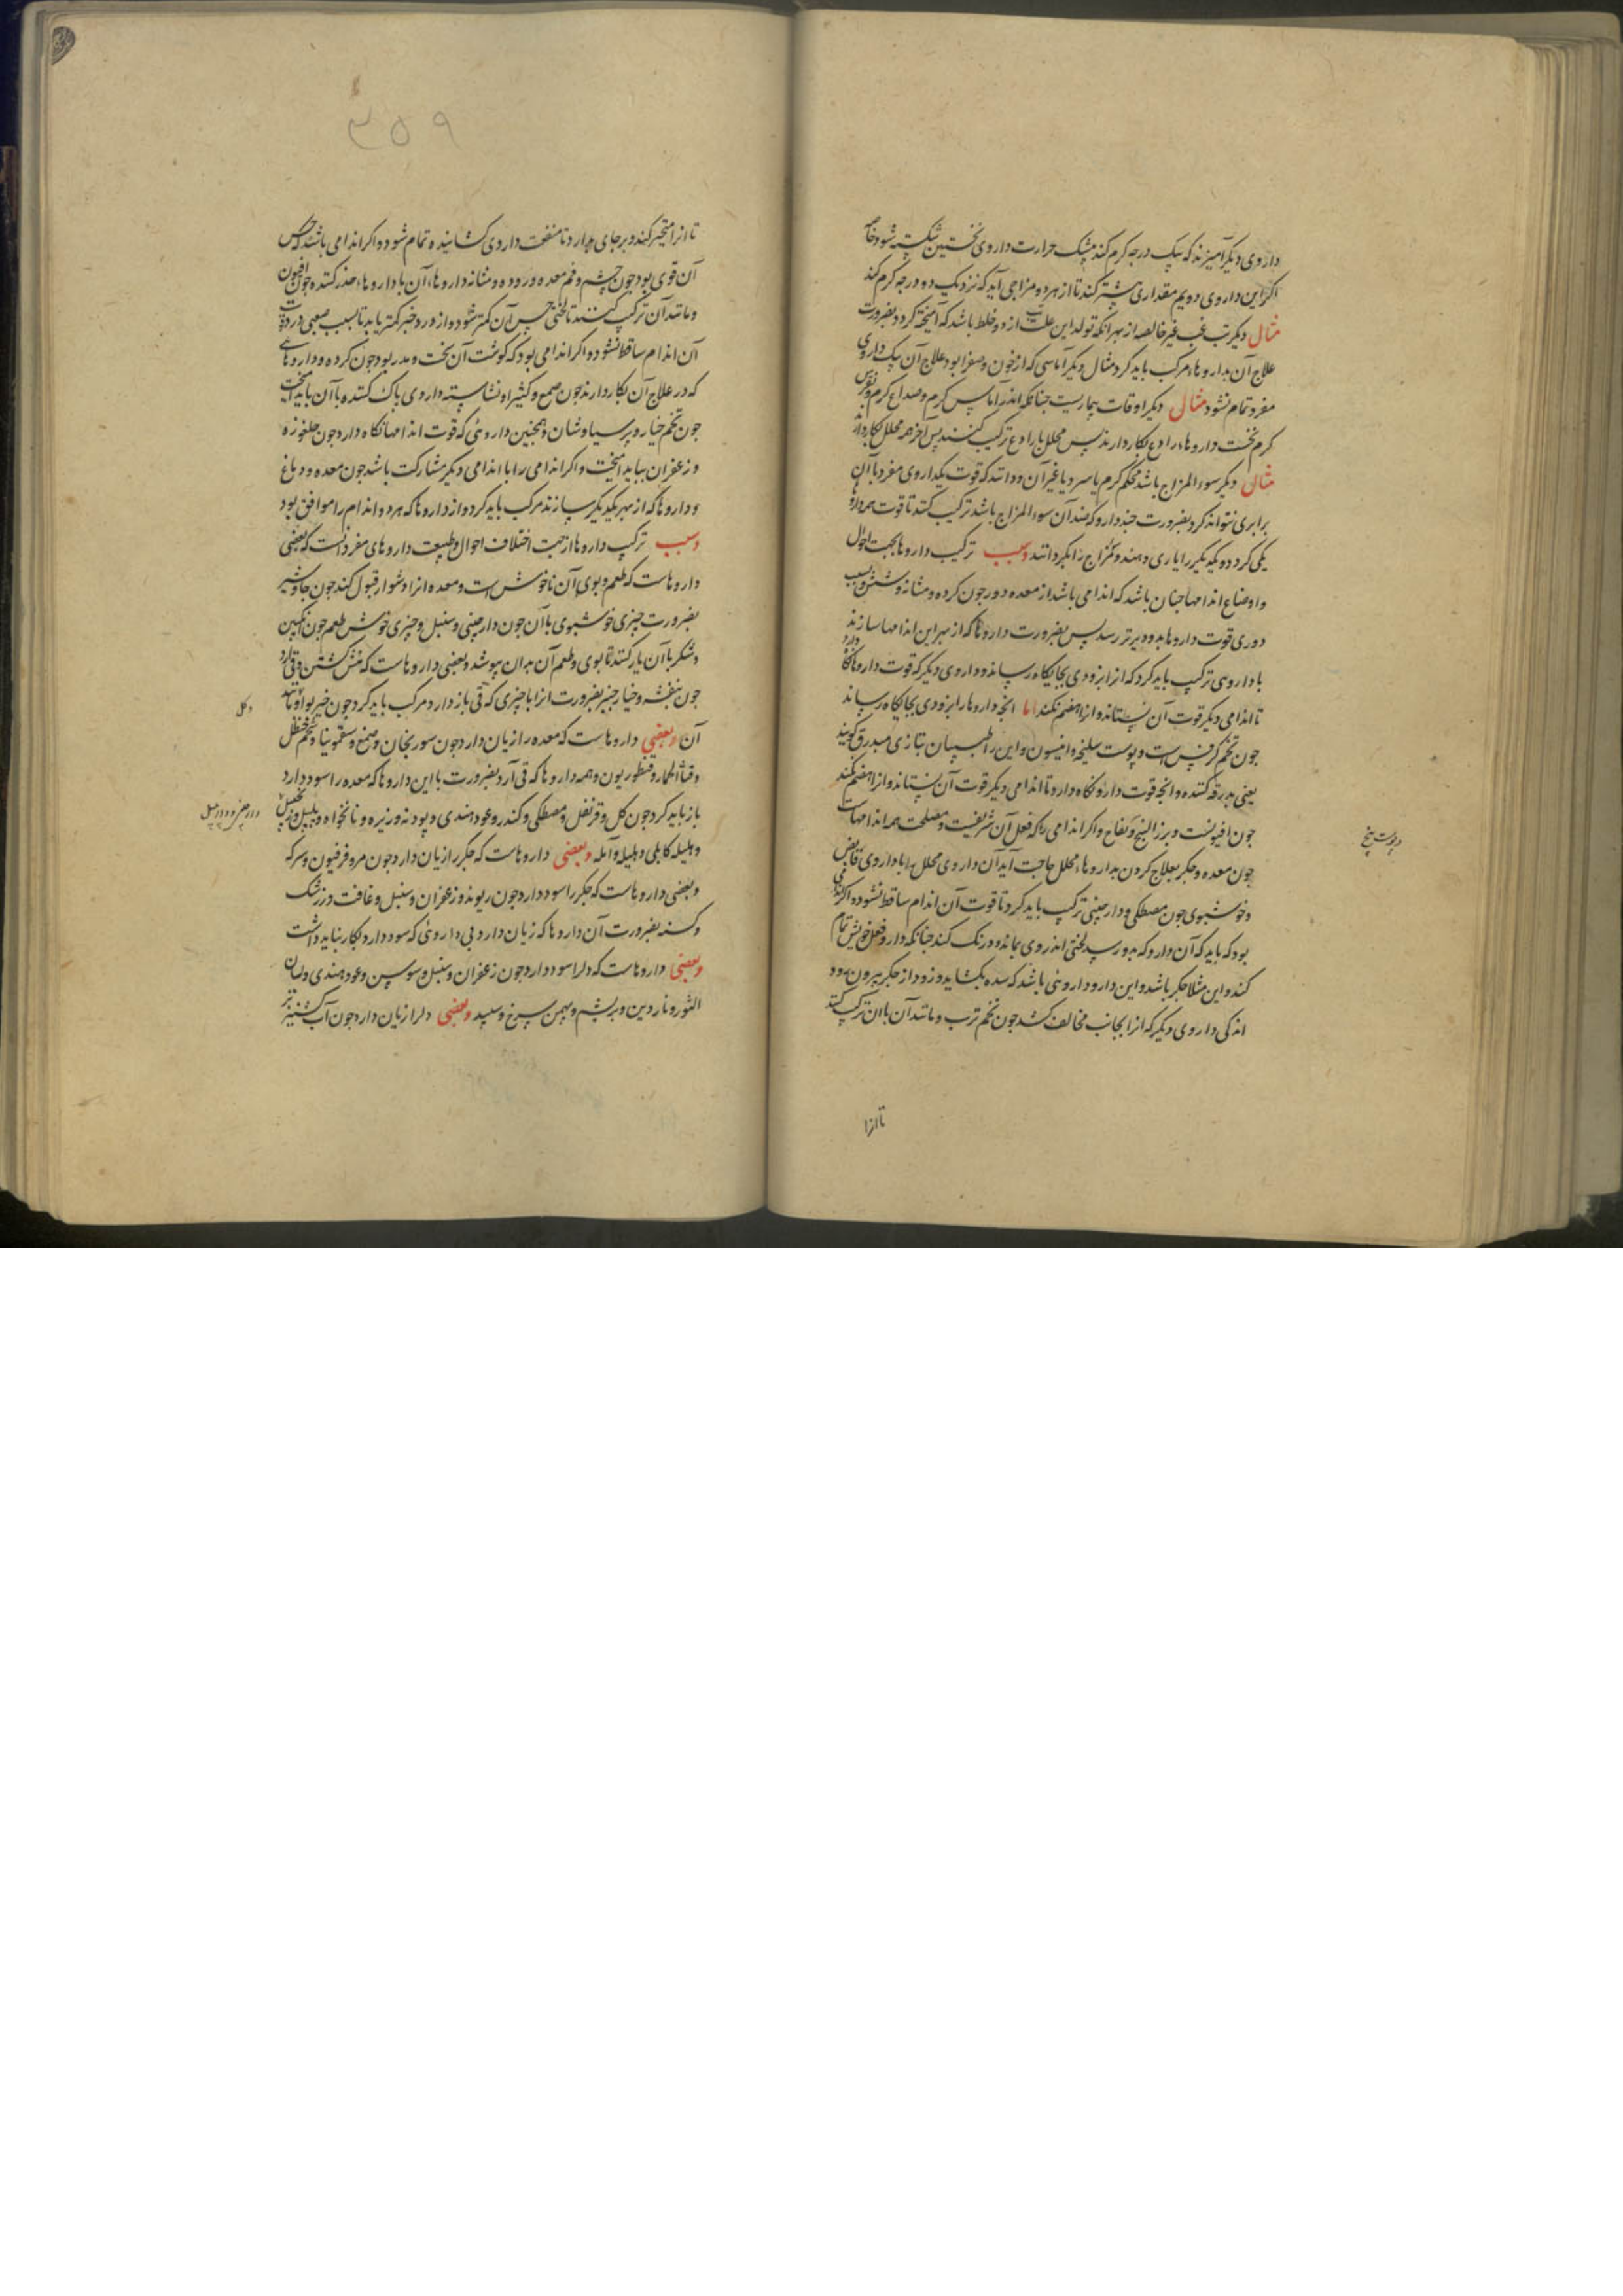 داروی دیگر آمیزند که بیک درجه گرم کند بیشک حرارت داروی نخستین شکسته شود خاصه
اگر این داروی دویم مقداری بیشتر کند تا از هر دو مزاجی آید که نزدیک دو درجه گرم کند
مثال دیگر تب غب غیر خالصه از بهر آنکه تولد این علت از دو خلط باشد که آمیخته گردد بضرورت
علاج آن بداروها مرکب باید کرد مثال دیگر آماسی که از خون و صفرا بود علاج آن بیک داروی
مفرد تمام نشود مثال دیگر اوقات بیماریست چنانکه اندر آماس گرم و صداع گرم و نقرس
گرم نخست داروهاء رادع بکار دارند پس محلل با رادع ترکیب کنند پس آخر همه محلل بکار دارند
مثال دیگر سوء المزاج باشد محکم گرم یا سرد یا غیر آن و دانند که قوت یک داروی مفرد با آن
برابری نتواند کرد بضرورت چند دارو که ضد آن سوء المزاج باشد ترکیب کنند تا قوت همه داروها
یکی گردد و یکدیگر را یاری دهند و مزاج را بگردانند و سبب ترکیب داروها بجهت احوال
و اوضاع اندامها چنان باشد که اندامی باشد از معده دور چون گرده و مثانه و شش و بسبب
دوری قوت داروها بدو دیرتر رسد پس بضرورت داروها که از بهر این اندامها سازند
با داروی ترکیب باید کرد که آنرا بزودی بجایگاه رساند و داروی دیگر که قوت داروها نگاه دارد
تا اندامی دیگر قوت آن نستاند و آنرا هضم نکند اما انچه داروها را بزودی بجایگاه رساند
چون تخم کرفس است و پوست سلیخه و انیسون و این را طبیبان بتازی مبدرق گویند
یعنی بدرقه کننده و انچه قوت دارو نگاه دارد تا اندامی دیگر قوت آن نستاند و آنرا هضم نکند
چون افیونست و بزر البنج و تفاح و اگر اندامی را که فعل آن شریفست و مصلحت همه اندامهاست
چون معده و جگر بعلاج کردن بداروهاء محلل حاجت آید آن داروی محلل را با داروی قابض
و خوشبوی چون مصطکی و دارچینی ترکیب باید کرد تا قوت آن اندام ساقط نشود و اگر اندامی
بود که باید که آن دارو که بدو رسد لختی اندر وی بماند و درنگ کند چنانکه دارو فعل خویش تمام
کند و این مثلا جگر باشد و این دارو داروئی باشد که سده بگشاید و زود از جگر بیرون رود
اندکی داروی دیگر که آنرا بجانب مخالف کشد چون تخم ترب و مانند آن با آن ترکیب کنند
تا آنرا
و پوست بیخ
۳۵۹
تا آنرا متحیر کند و بر جای بدارد تا منفعت داروی گشاینده تمام شود و اگر اندامی باشد که حس
آن قوی بود چون چشم و فم معده و روده و مثانه داروهاء آن با داروهاء خدر کننده چون افیون
و مانند آن ترکیب کنند تا لختی حس آن کمتر شود و از درد خبر کمتر یابد تا بسبب صعبی درد قوت
آن اندام ساقط نشود و اگر اندامی بود که گوشت آن سخت و مدر بود چون گرده و داروهائی
که در علاج آن بکار دارند چون صمغ و کثیرا و نشاسته داروی پاک کننده با آن باید آمیخت
چون تخم خیار و پرسیاوشان و همچنین داروئی که قوت اندامها نگاه دارد چون جلغوزه
و زعفران بباید آمیخت و اگر اندامی را با اندامی دیگر مشارکت باشد چون معده و دماغ
و داروها که از بهر یکدیگر سازند مرکب باید کرد و از داروها که هر دو اندام را موافق بود
و سبب ترکیب داروها از جهت اختلاف احوال و طبیعت داروهای مفرد آنست که بعضی
داروهاست که طعم و بوی آن ناخوش است و معده آنرا دشوار قبول کند چون جاوشیر
بضرورت چیزی خوشبوی با آن چون دارچینی و سنبل و چیزی خوش طعم چون انگبین
و شکر با آن یار کنند تا بوی و طعم آن بدان بپوشد و بعضی داروهاست که منش گشتن و قی آرد
چون بنفشه و خیارچنبر بضرورت آنرا با چیزی که قی باز دارد مرکب باید کرد چون خیربوا و مانند
آن و بعضی داروهاست که معده را زیان دارد چون سورنجان و صمغ و سقمونیا و تخم حنظل
و قثاء الحمار و قنطوریون و همه داروها که قی آرد بضرورت با این داروها که معده را سود دارد
باز باید کرد چون گل و قرنفل و مصطکی و کندر و عود هندی و پودنه و زیره و نانخواه و پلپل و زنجبیل
و هلیله کابلی و بلیله و آمله و بعضی داروهاست که جگر را زیان دارد چون مر و فرفیون و سرکه
و بعضی داروهاست که جگر را سود دارد چون ریوند و زعفران و سنبل و غافت و زرشک
و کسنه بضرورت آن داروها که زیان دارد بی داروئی که سود دارد بکار نباید داشت
و بعضی داروهاست که دل را سود دارد چون زعفران و سنبل و سوسن و عود هندی و لسان
الثور و ناردین و بریشم و بهمن سرخ و سپید و بعضی دل را زیان دارد چون آب گشنیز تر
و گل